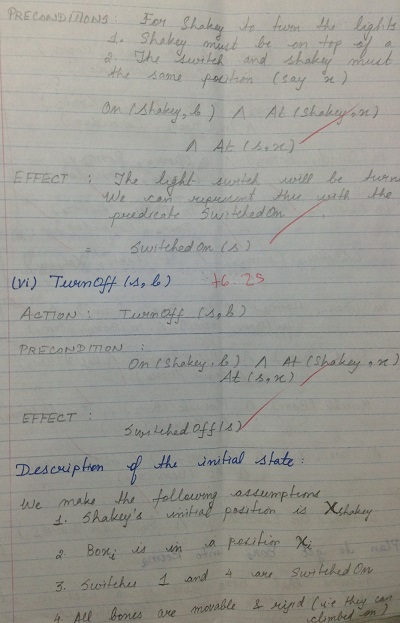 PRECONDITIONS: For Shakey to turn the lights
1. Shakey must be on top of a
2. The switch and shakey must
the same position (say x)
On (Shakey, b) ∧ At (Shakey, x)
∧ At (s, x)
EFFECT : The light switch will be turn
We can represent this with the
predicate SwitchedOn
= SwitchedOn (s)
(vi) TurnOff (s, b) +6.25
ACTION: TurnOff (s, b)
PRECONDITION :
On (Shakey, b) ∧ At (Shakey, x)
At (s, x)
EFFECT :
SwitchedOff (s)
Description of the initial state:
We make the following assumptions
1. Shakey's initial position is Xshakey
2. Boxi is in a position Xi
3. Switches 1 and 4 are SwitchedOn
4. All boxes are movable & rigid (i.e they can
climbed on)